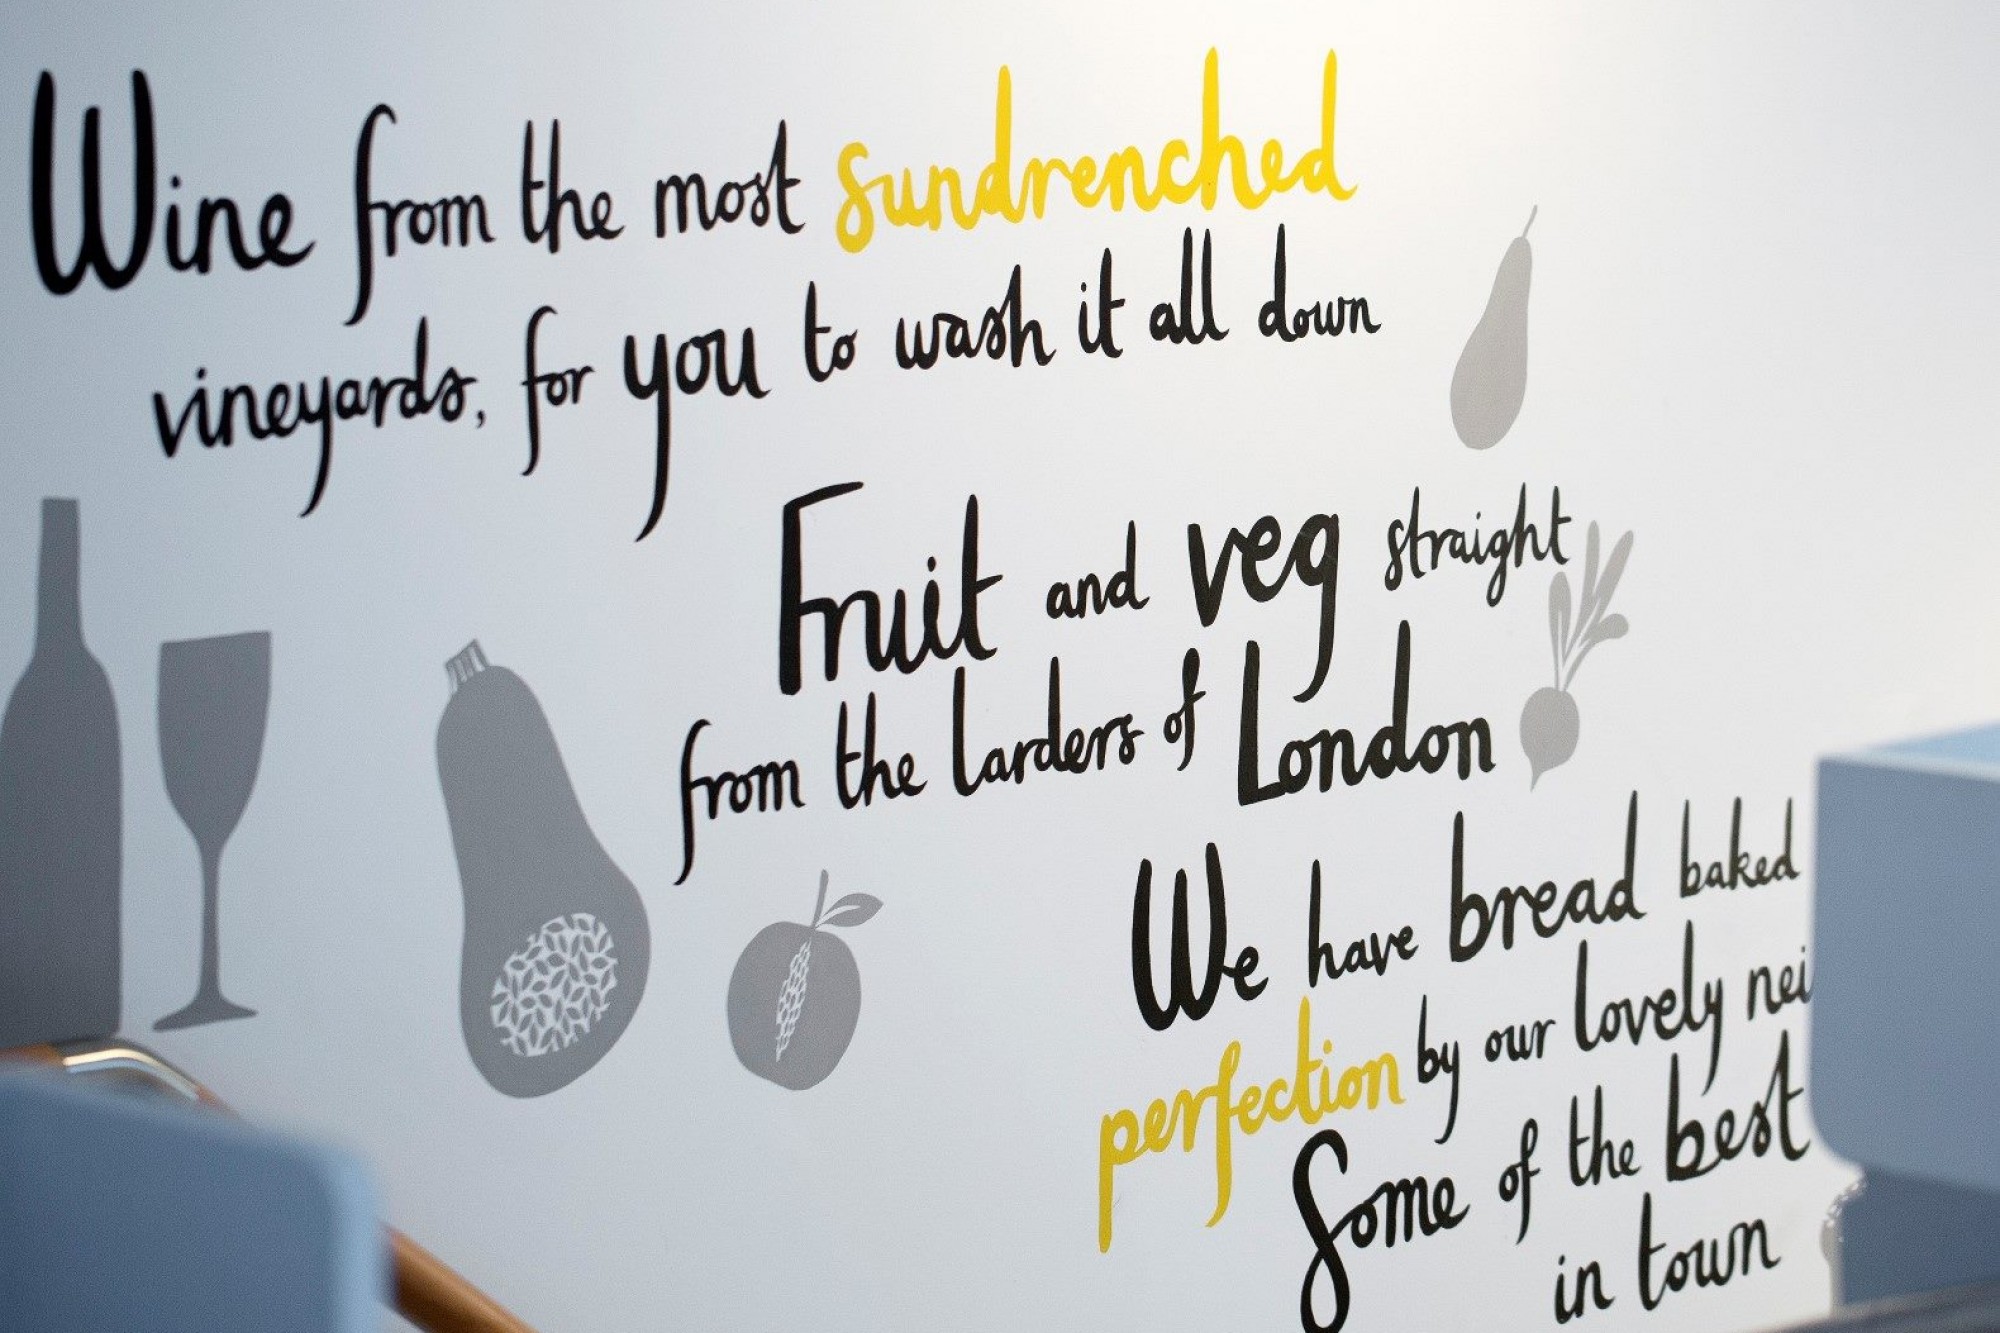 Wine from the most sundrenched
vineyards, for you to wash it all down
Fruit and veg straight
from the larders of London
We have bread baked
perfection by our lovely nei
Some of the best
in town